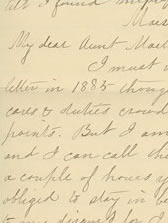 I found
My dear Aunt
I must
letter in 1885 thoug
cares & duties crowd
points. But I am
and I can call th
a couple of hours
obliged to stay in